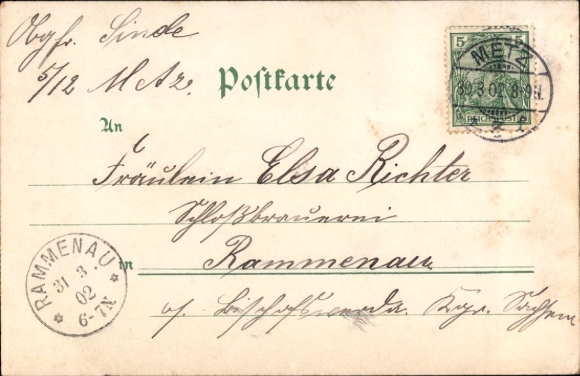 Obgfr. Sinde
5/12 Metz.
Postkarte
5
REICHSPOST
METZ
30.3.02.8-9N.
An
Fräulein Elsa Richter
Schloßbrauerei
in Rammenau
b/. Bischofswerda. Kgr. Sachsen
RAMMENAU
31 3.
02
6-7N